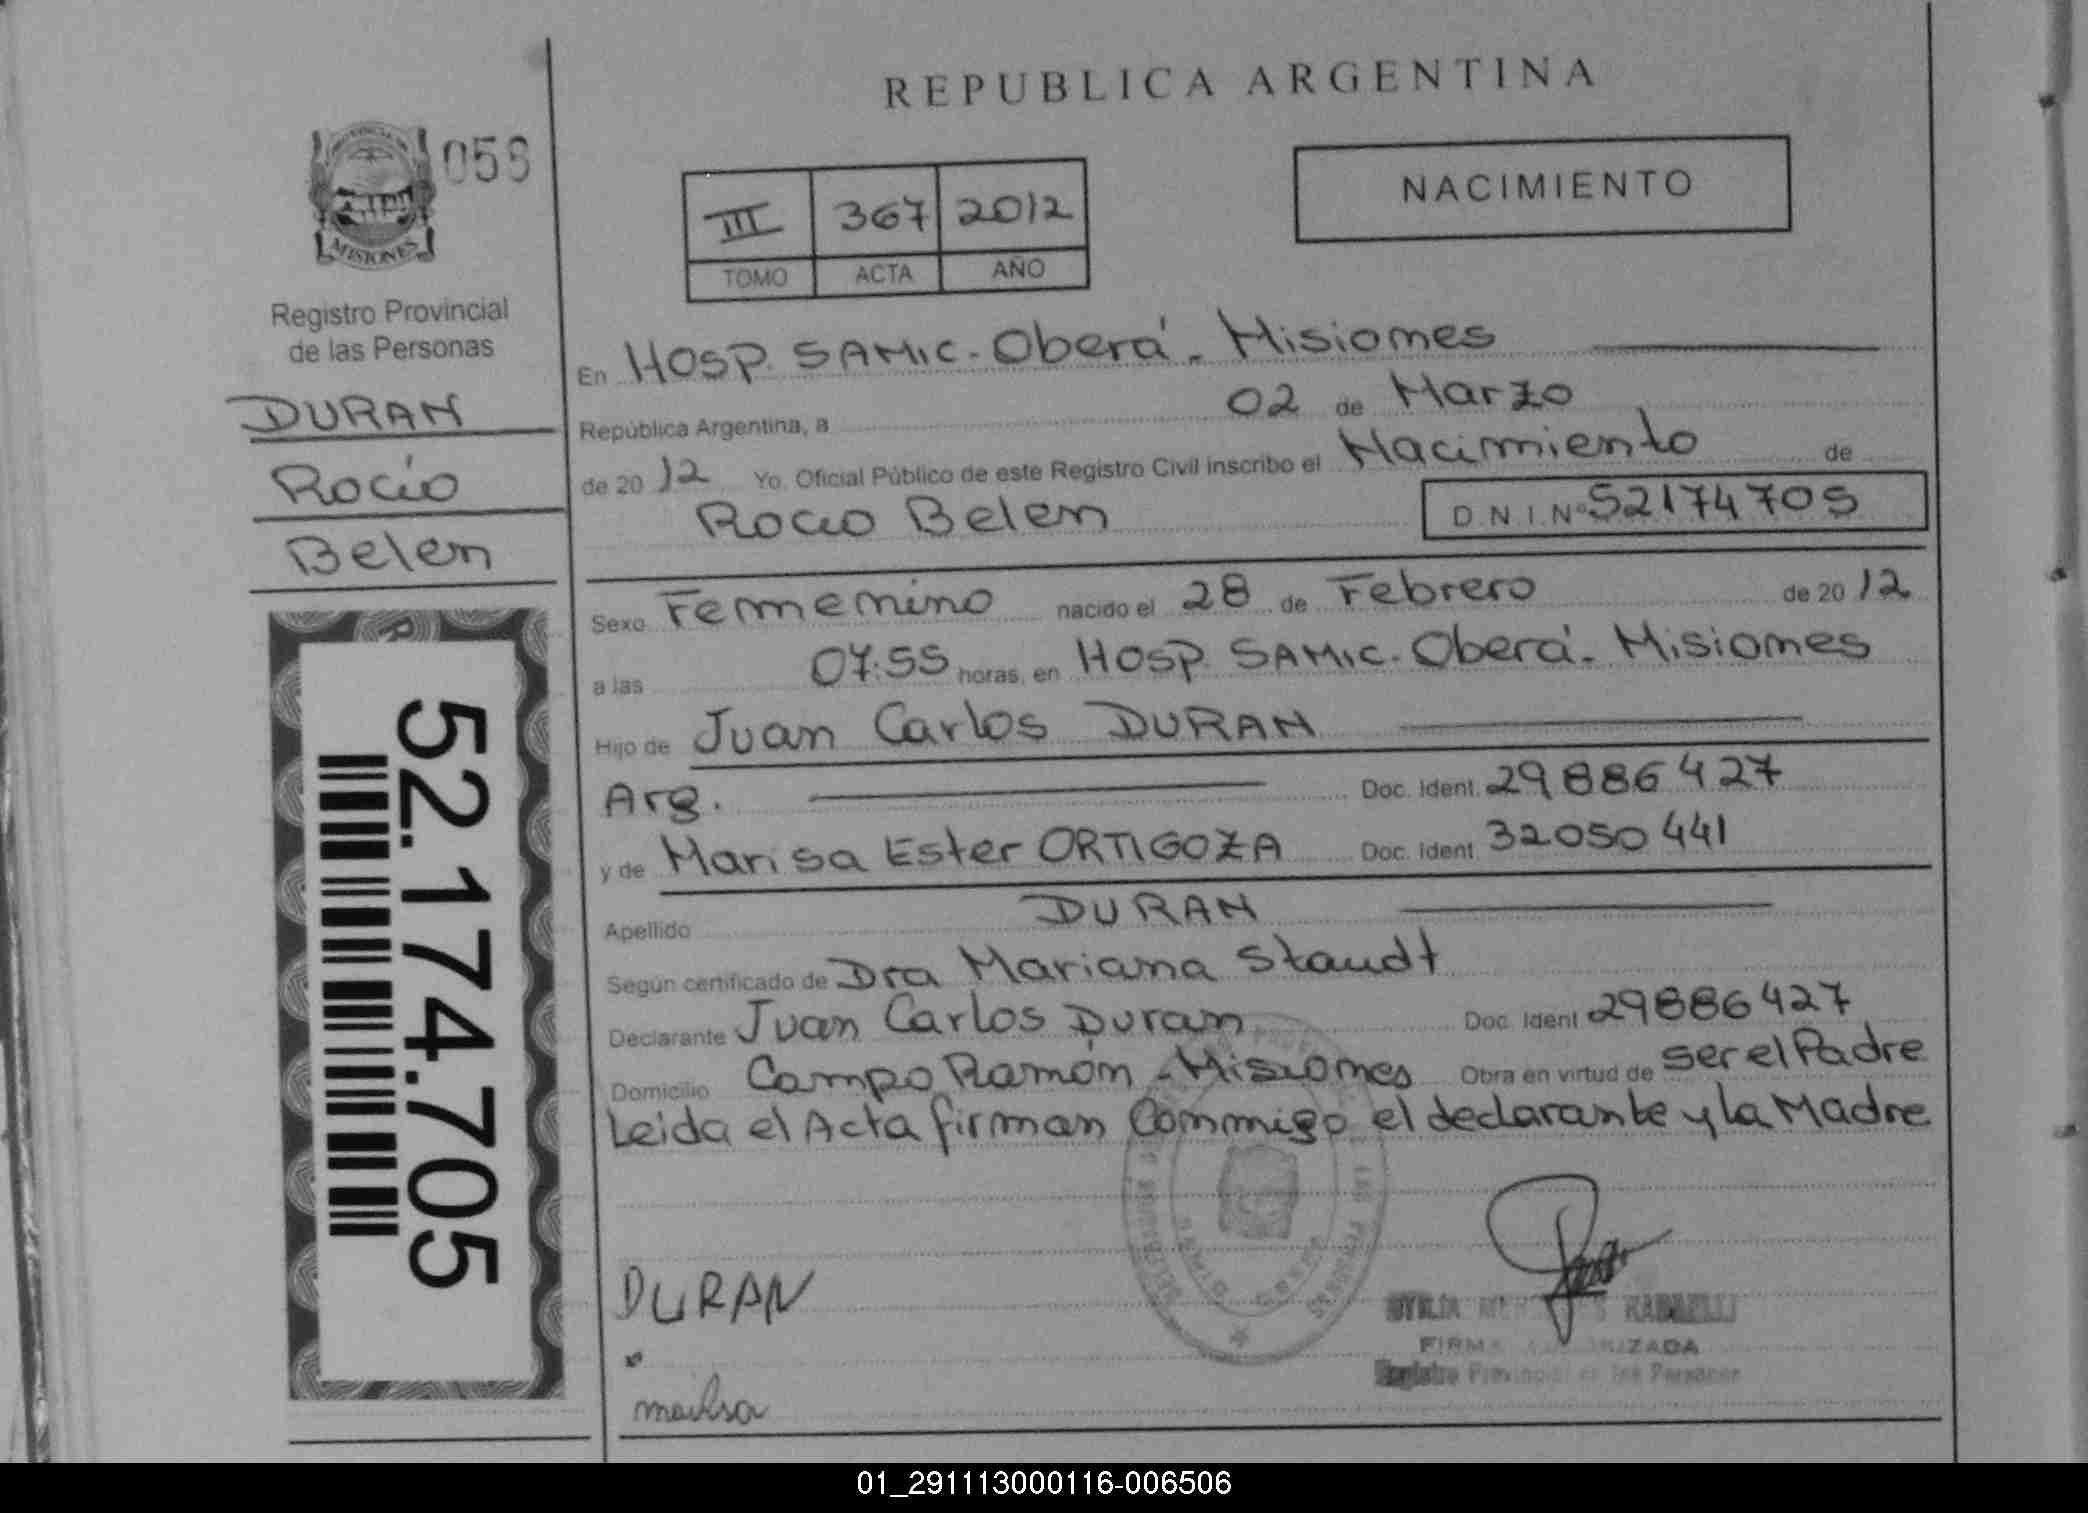 REPUBLICA ARGENTINA
PROVINCIA DE
MISIONES
NACIMIENTO
III 367 2012
TOMO ACTA AÑO
Registro Provincial
de las Personas
DURAN
Rocío
Belen
52.174.705
En Hosp. SAMIC. Oberá. Misiones
República Argentina, a 02 de Marzo
de 2012 Yo, Oficial Público de este Registro Civil inscribo el Nacimiento de
Rocio Belen D.N.I. Nº 52174705
Sexo Femenino nacido el 28 de Febrero de 2012
a las 07:55 horas, en Hosp. SAMIC. Oberá. Misiones
Hijo de Juan Carlos DURAN
Arg. Doc. Ident. 29886427
y de Marisa Ester ORTIGOZA Doc. Ident 32050441
Apellido DURAN
Según certificado de Dra Mariana Staudt
Declarante Juan Carlos Duran Doc. Ident 29886427
Domicilio Campo Ramón - Misiones Obra en virtud de ser el Padre
Leida el Acta firman Conmigo el declarante y la Madre
DURAN
FIRMA AUTORIZADA
Registro Provincial de las Personas
01_291113000116-006506